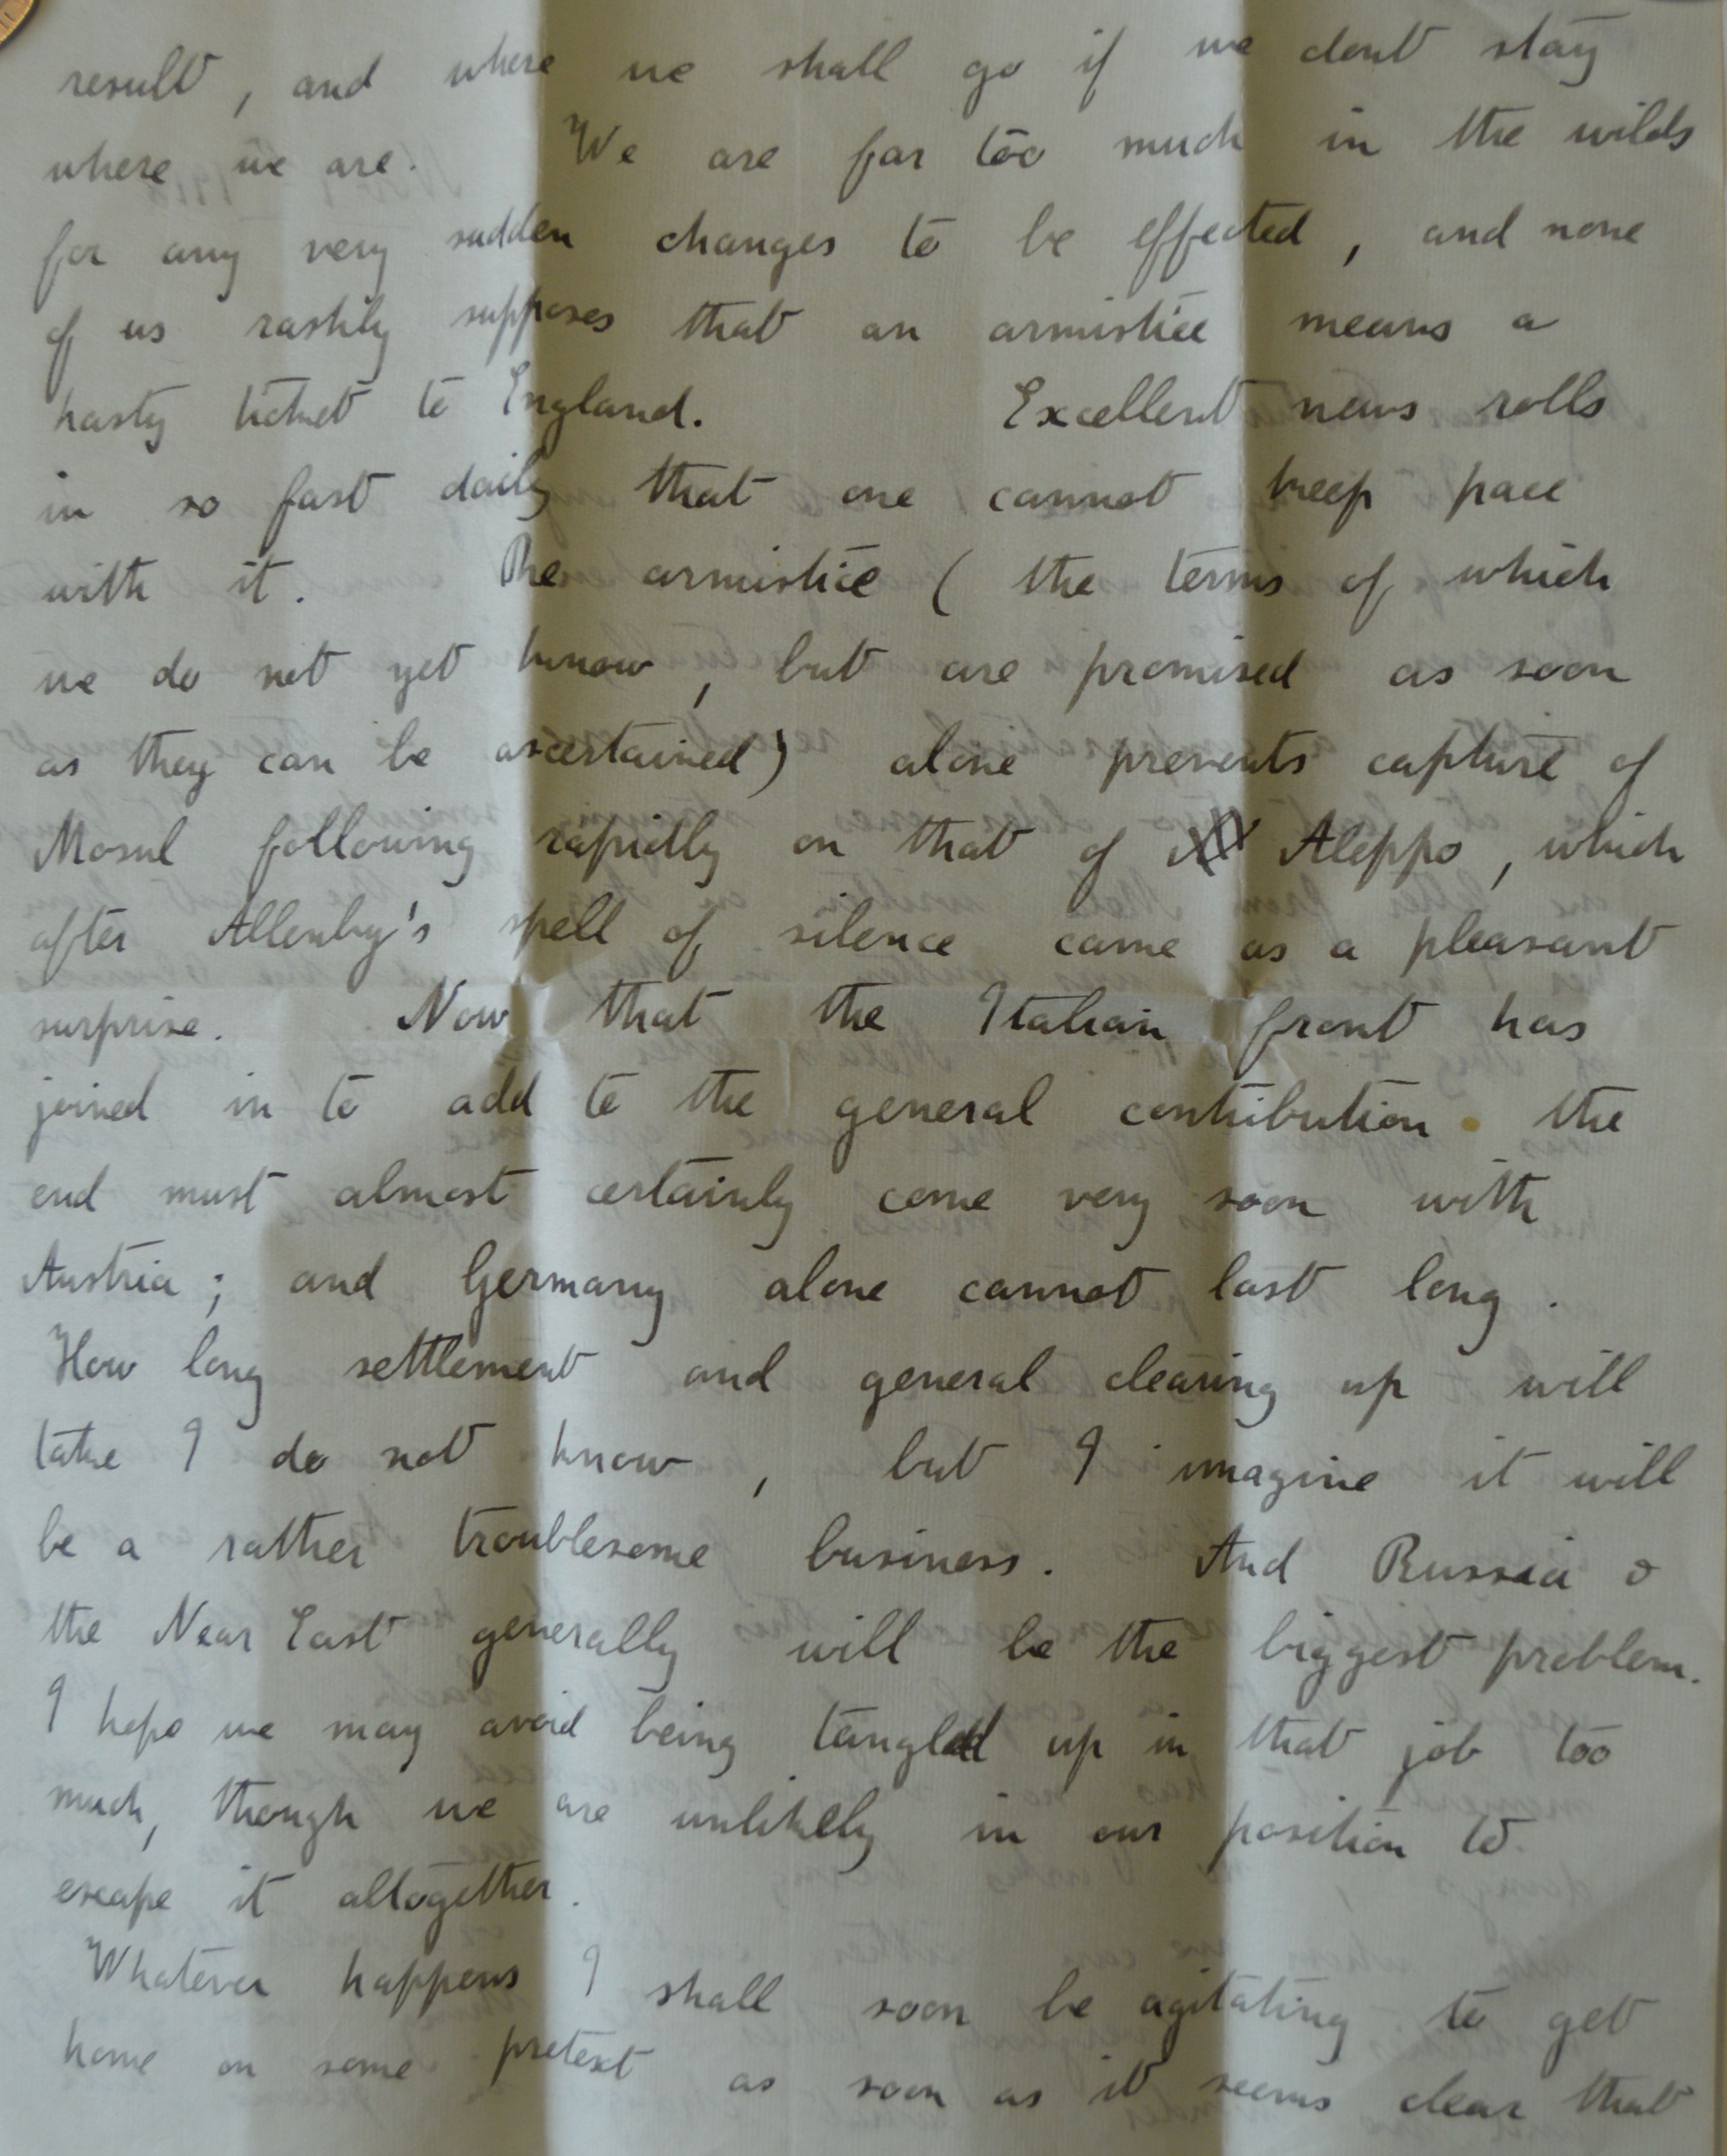 result, and where we shall go if we dont stay
where we are. We are far too much in the wilds
for any very sudden changes to be effected, and none
of us rashly supposes that an armistice means a
hasty ticket to England. Excellent news rolls
in so fast daily that one cannot keep pace
with it. The armistice (the terms of which
we do not yet know, but are promised as soon
as they can be ascertained) alone prevents capture of
Mosul following rapidly on that of Aleppo, which
after Allenby's spell of silence came as a pleasant
surprise. Now that the Italian front has
joined in to add to the general contribution the
end must almost certainly come very soon with
Austria; and Germany alone cannot last long.
How long settlement and general clearing up will
take I do not know, but I imagine it will
be a rather troublesome business. And Russia &
the Near East generally will be the biggest problem.
I hope we may avoid being tangled up in that job too
much, though we are unlikely in our position to
escape it altogether.
Whatever happens I shall soon be agitating to get
home on some pretext as soon as it seems clear that